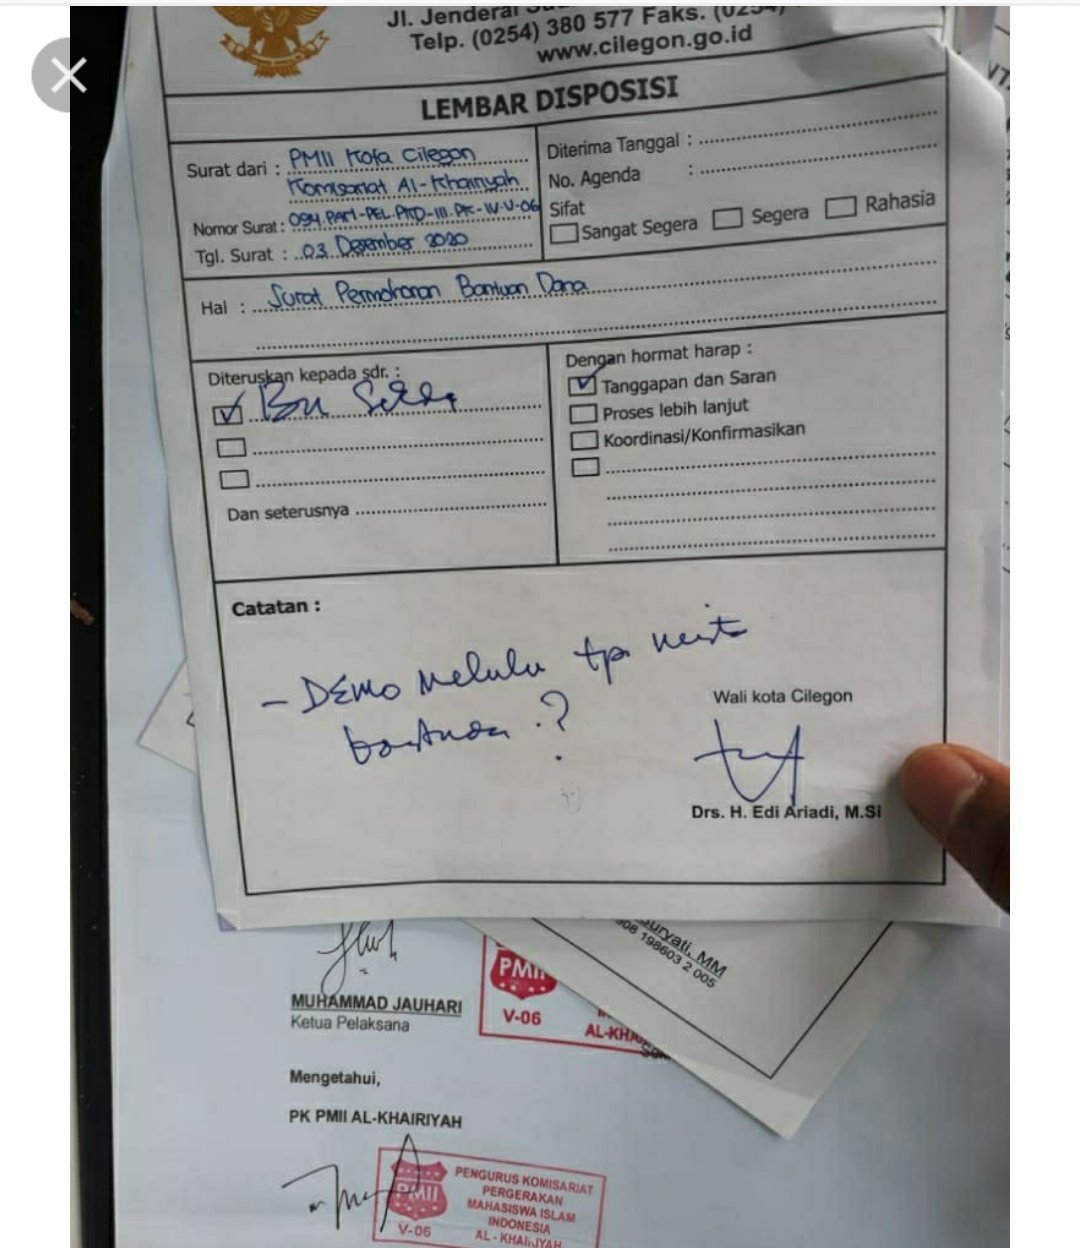 Jl. Jenderal
Telp. (0254) 380 577 Faks. (0254)
www.cilegon.go.id
LEMBAR DISPOSISI
Surat dari : PMII Kota Cilegon
Komisariat Al-Khairiyah
Nomor Surat : 094.PAN-PEL.PKD-III.PK-IV.V-06
Tgl. Surat : 03 Desember 2020
Diterima Tanggal :
No. Agenda :
Sifat
Sangat Segera Segera Rahasia
Hal : Surat Permohonan Bantuan Dana
Diteruskan kepada sdr. :
Bu Sekda
Dan seterusnya
Dengan hormat harap :
Tanggapan dan Saran
Proses lebih lanjut
Koordinasi/Konfirmasikan
Catatan :
- DEMO Melulu tpi
bantuan ?
Wali kota Cilegon
Drs. H. Edi Ariadi, M.Si
Suryati, MM
198603 2 005
MUHAMMAD JAUHARI
Ketua Pelaksana
PMII
V-06
Mengetahui,
PK PMII AL-KHAIRIYAH
PMII
V-06
PENGURUS KOMISARIAT
PERGERAKAN
MAHASISWA ISLAM
INDONESIA
AL - KHAIRIYAH